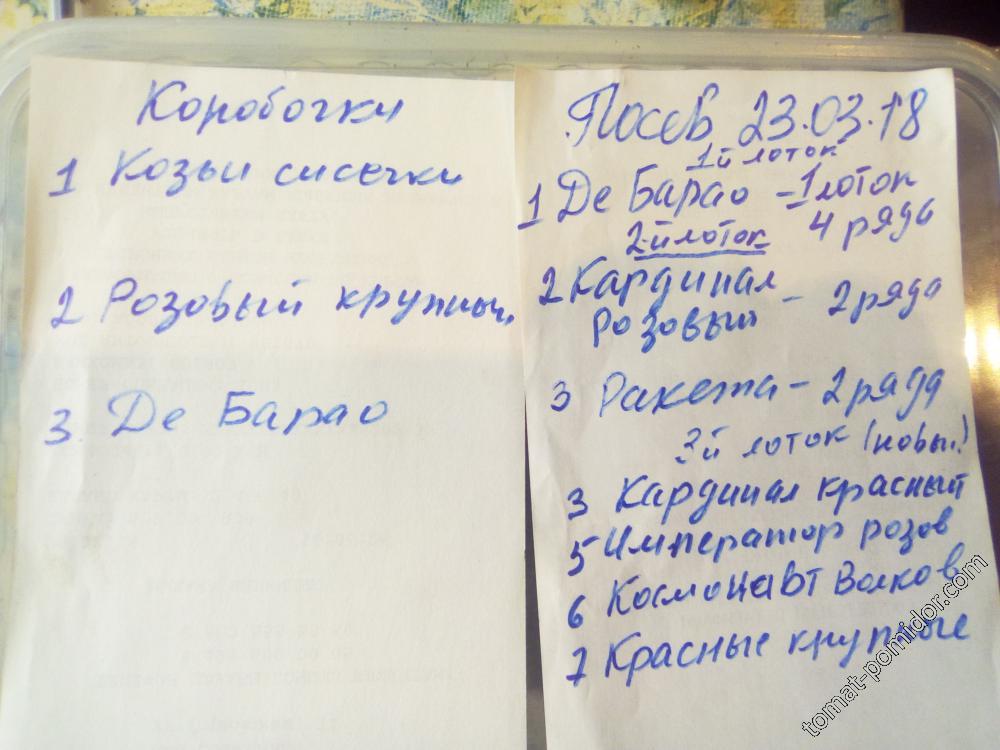 Коробочки
1 Козьи сисечки
2 Розовый крупный
3. Де Барао
Посев 23.03.18
1й лоток
1 Де Барао - 1 лоток
4 ряда
2-й лоток
2 Кардинал
розовый - 2 ряда
3 Ракета - 2 ряда
3й лоток (новый)
3 Кардинал красный
5 Император розов
6 Космонавт Волков
7 Красные крупные
tomat-pomidor.com